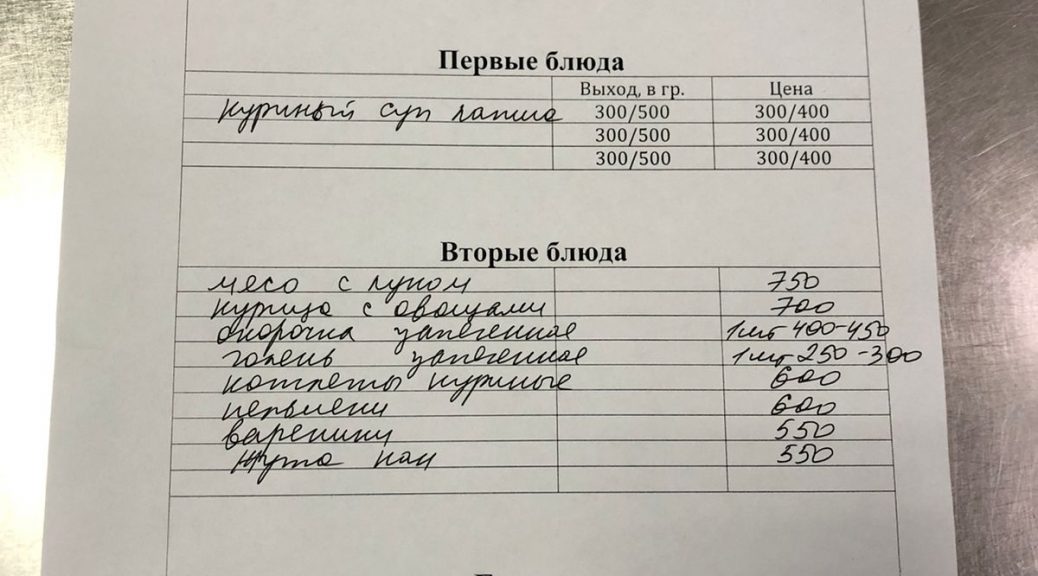 Первые блюда
Выход, в гр. Цена
куриный суп лапша 300/500 300/400
300/500 300/400
300/500 300/400
Вторые блюда
мясо с луком 750
курица с овощами 700
окорочка запеченное 1шт 400-450
голень запеченное 1шт 250-300
котлеты куриные 600
пельмени 600
вареники 550
жута нан 550